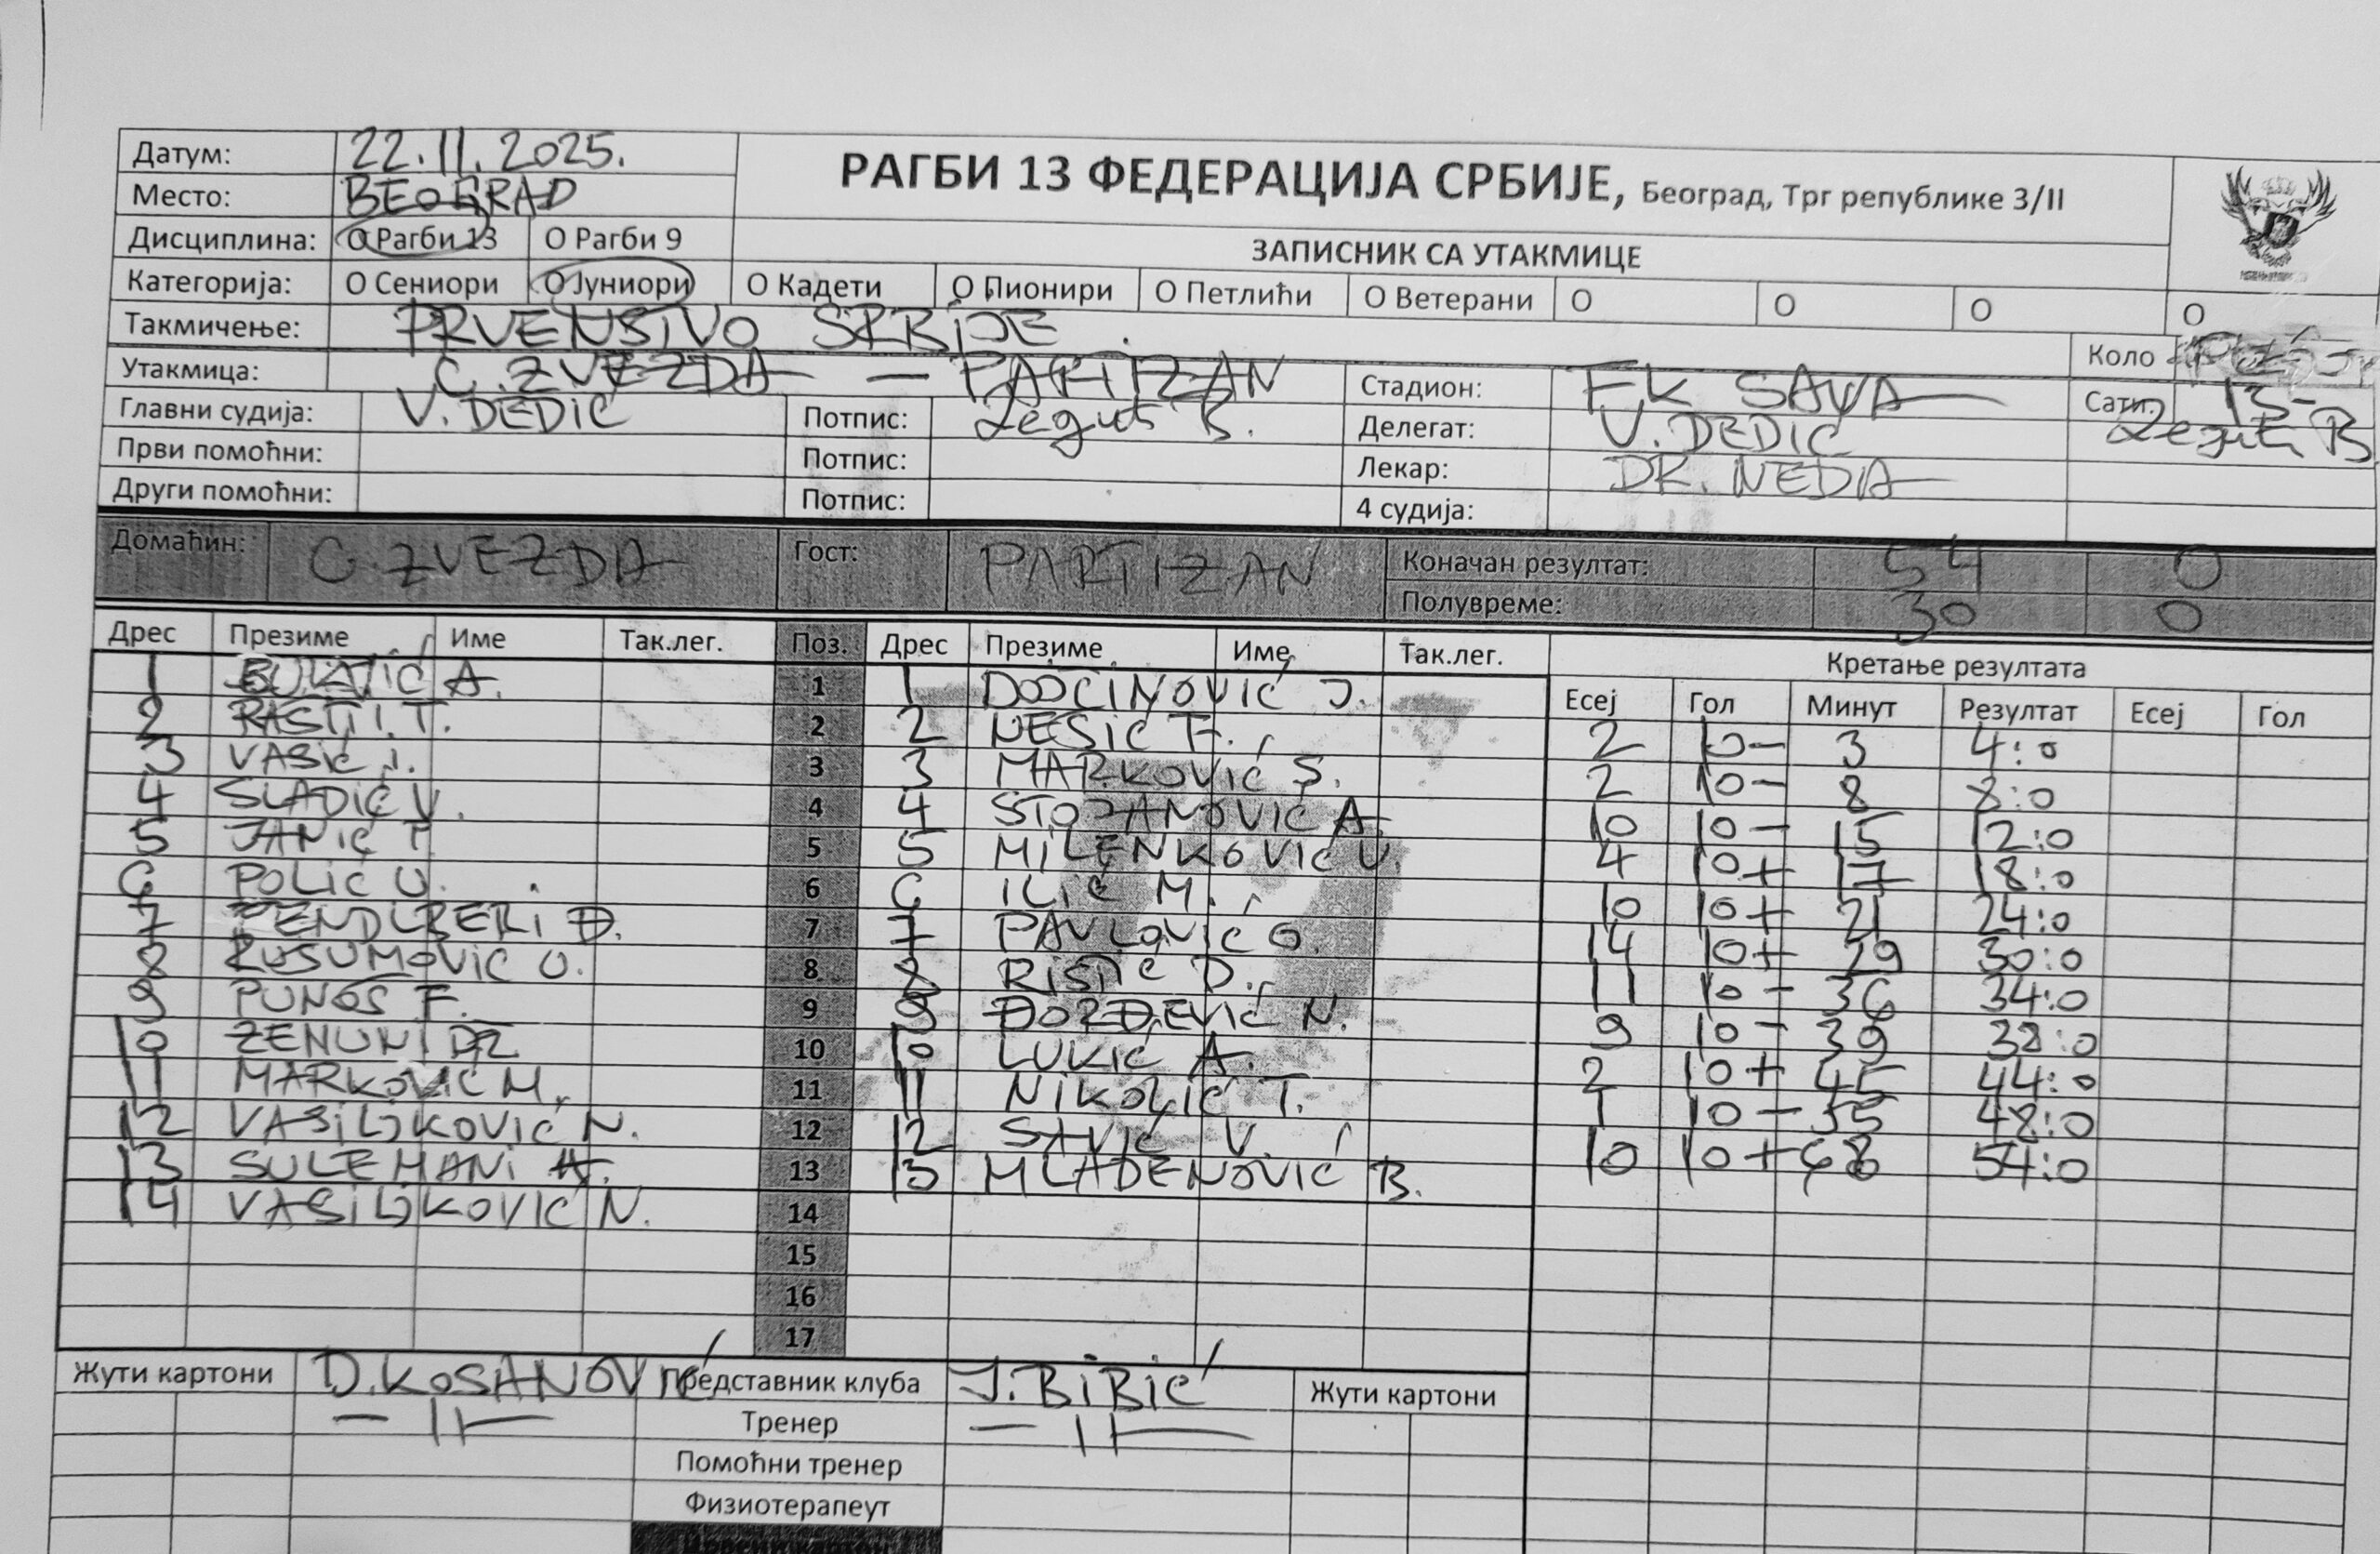 Датум: 22.11.2025.
РАГБИ 13 ФЕДЕРАЦИЈА СРБИЈЕ, Београд, Трг републике 3/II
Место: BEOGRAD
Дисциплина: О Рагби 13 О Рагби 9
ЗАПИСНИК СА УТАКМИЦЕ
Категорија: О Сениори О Јуниори О Кадети О Пионири О Петлићи О Ветерани О О О О
Такмичење: PRVENSTVO SRBIJE
Коло
Утакмица: C. ZVEZDA — PARTIZAN Стадион: FK SAVA Сати: 13-
Главни судија: V. DEDIĆ Потпис: Делегат: V. DEDIĆ
Први помоћни: Потпис: Лекар: DR. NEDA
Други помоћни: Потпис: 4 судија:
Домаћин: C. ZVEZDA Гост: PARTIZAN Коначан резултат: 54 0
Полувреме: 30 0
Дрес Презиме Име Так.лег. Поз. Дрес Презиме Име Так.лег. Кретање резултата
Есеј Гол Минут Резултат Есеј Гол
1 A. 1 1 DOJČINOVIĆ J. 2 10- 3 4:0
2 2 2 NEŠIĆ F. 2 10- 8 8:0
3 VASIĆ J. 3 3 MARKOVIĆ S. 10 10- 15 12:0
4 SLADIĆ V. 4 4 STOJANOVIĆ A. 4 10+ 17 18:0
5 JANIĆ T. 5 5 MILENKOVIĆ U. 10 10+ 21 24:0
6 POLIĆ U. 6 6 ILIĆ M. 14 10+ 29 30:0
7 Đ. 7 7 PAVLOVIĆ O. 11 10- 36 34:0
8 U. 8 8 RISTIĆ D. 9 10- 39 38:0
9 F. 9 9 ĐORĐEVIĆ N. 2 10+ 45 44:0
10 ZENUNI DŽ 10 10 LUKIĆ A. 1 10- 55 48:0
11 MARKOVIĆ M. 11 11 NIKOLIĆ T. 10 10+ 68 54:0
12 VASILJKOVIĆ N. 12 12 SAVIĆ V.
13 SULEMANI A. 13 13 MLADENOVIĆ B.
14 VASILJKOVIĆ N. 14
15
16
17
Жути картони D. KOSANOVIĆ Представник клуба J. BIBIĆ Жути картони
— 11 — Тренер — 11 —
Помоћни тренер
Физиотерапеут